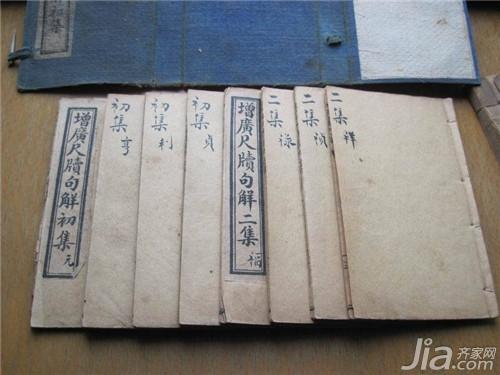 增廣尺牘句解初集 元
初集 亨
初集 利
初集 貞
增廣尺牘句解二集 福
二集 祿
二集 禎
二集 祥
集
Jia.com
齐家网